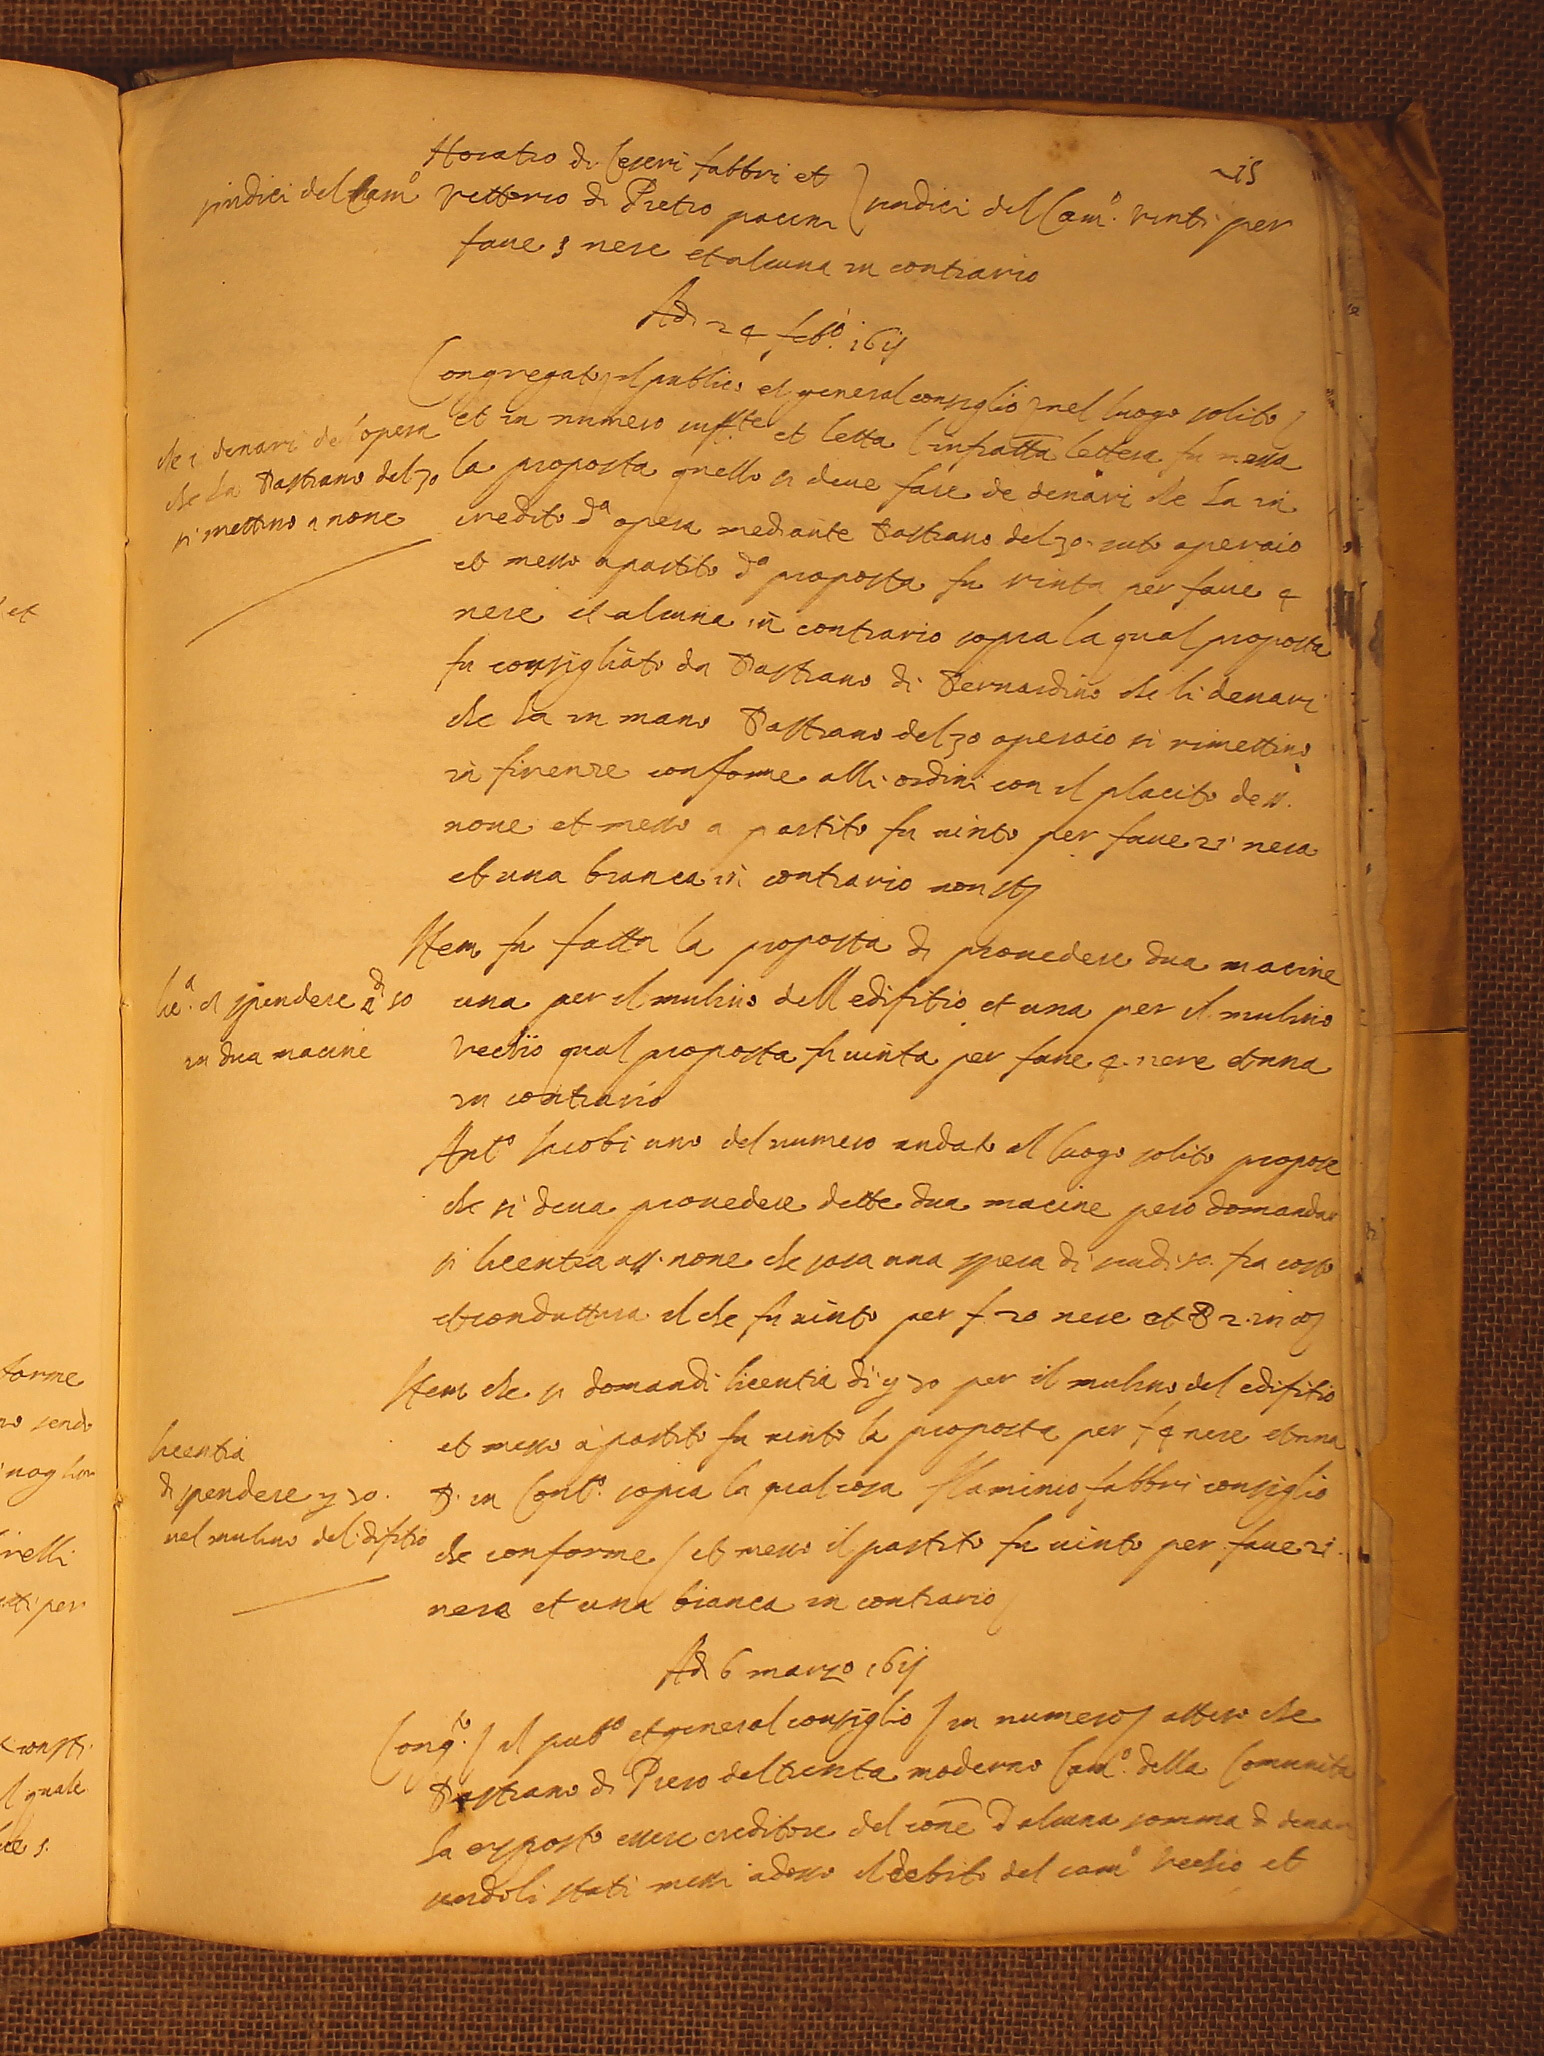 15
Horatio di Ceseri fabbri et
sindici del Cam.o
Vettorio di Pietro pacini sindici del Cam.o vinti per
faue 5 nere et alcuna in contrario
Adi 24 feb.o 1611
Congregato il publico et general consiglio nel luogo solito
et in numero suff.te et letta l'infratta lettera fu messa
che i denari del opera
che ha Bastiano del 30
si mettino a none
la proposta quello si deue fare de denari che ha in
credito d.a opera mediante Bastiano del 30 suto operaio
et messo a partito d.a proposta fu vinta per faue 4
nere et alcuna in contrario sopra la qual proposta
fu consigliato da Bastiano di Bernardino che li denari
che ha in mano Bastiano del 30 operaio si rimettino
in firenze conforme alli ordini con il placito de ss.
noue et messo a partito fu uinto per faue 21 nera
et una bianca in contrario non
Item fu fatta la proposta di prouedere dua macine
lic.a di spendere 50
in dua macine
una per il mulino dell edifitio et una per il mulino
vechio qual proposta fu uinta per faue 4 nere et una
in contrario
Ant.o Jacobi uno del numero andato al luogo solito propose
che si deua prouedere dette dua macine pero domandar
si licentia a ss. none che sara una spesa di scudi 50 fra costo
et conduttura il che fu uinto per f 20 nere et B 2 in
Item che si domandi licentia di 30 per il mulino del edifitio
licentia
di spendere 30.
nel mulino del difitio
et messo a partito fu uinto la proposta per f 4 nere et una
B. in Cont.o sopra la qual cosa flaminio fabbri consiglio
che conforme et messo il partito fu uinto per faue 21
nera et una bianca in contrario
Adi 6 marzo 1611
Cong.to il pub.o et general consiglio in numero atteso che
Bastiano di Piero del tenta moderno Cam.o della Comunita
ha esposto essere creditore del cone d alcuna somma di denari
sendoli stati messi adosso il debito del cam.o vechio et